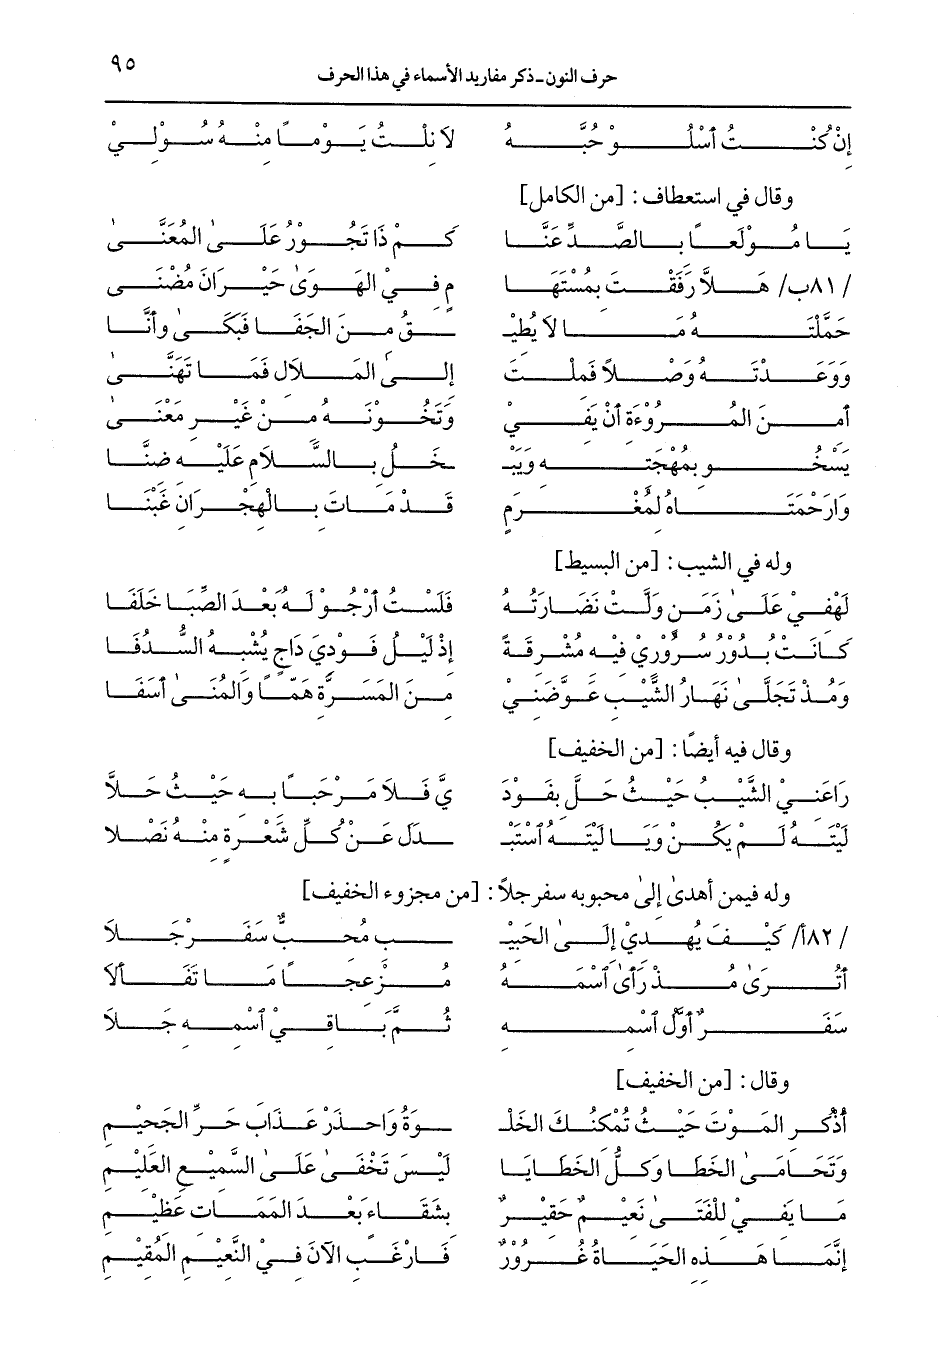 حرف النون ـ ذكر مفاريد الأسماء في هذا الحرف ٩٥
إنْ كُنْتُ أَسْلُو حُبَّهُ لاَ نِلْتُ يَوْماً مِنْهُ سُوْلِيْ
وقال في استعطاف: [من الكامل]
يَا مُوْلَعاً بِالصَّدِّ عَنَّا كَمْ ذَا تَجُوْرُ عَلَىٰ المُعَنَّىٰ
/ ٨١ب/ هَلاَّ رَفَقْتَ بِمُسْتَهَا مٍ فِيْ الهَوَىٰ حَيْرَانَ مُضْنَىٰ
حَمَّلْتَهُ مَا لاَ يُطِيْـ ـقُ مِنَ الجَفَا فَبَكَىٰ وأَنَّا
وَوَعَدْتَهُ وَصْلاً فَمِلْتَ إلىٰ المَلاَلِ فَمَا تَهَنَّىٰ
أَمِنَ المُرُوْءَةِ أَنْ يَفِيْ وَتَخُوْنَهُ مِنْ غَيْرِ مَعْنَىٰ
يَسْخُو بِمُهْجَتِهِ وَيَبْـ ـخَلُ بِالسَّلاَمِ عَلَيْهِ ضِنَّا
وَارَحْمَتَاهُ لُمُغْرَمٍ قَدْ مَاتَ بِالْهِجْرَانِ غَبْنَا
وله في الشيب: [من البسيط]
لَهْفِيْ عَلَىٰ زَمَنٍ وَلَّتْ نَضَارَتُهُ فَلَسْتُ أَرْجُو لَهُ بَعْدَ الصِّبَا خَلَفَا
كَانَتْ بُدُوْرُ سُرُوْرِيْ فِيْهِ مُشْرِقَةً إذْ لَيْلُ فَوْدِيَ دَاجٍ يُشْبِهُ السُّدُفَا
وَمُذْ تَجَلَّىٰ نَهَارُ الشَّيْبِ عَوَّضَنِيْ مِنَ المَسَرَّةِ هَمّاً وَالمُنَىٰ أَسَفَا
وقال فيه أيضًا: [من الخفيف]
رَاعَنِيْ الشَّيْبُ حَيْثُ حَلَّ بِفَوْدَ يَّ فَلاَ مَرْحَباً بِهِ حَيْثُ حَلاَّ
لَيْتَهُ لَمْ يَكُنْ وَيَا لَيْتَهُ ٱسْتَبْـ ـدَلَ عَنْ كُلِّ شَعْرَةٍ مِنْهُ نَصْلا
وله فيمن أهدىٰ إلىٰ محبوبه سفرجلاً: [من مجزوء الخفيف]
/ ٨٢أ/ كَيْفَ يُهْدِيْ إلَىٰ الحَبِيْـ ـبِ مُحِبٌّ سَفَرْجَلاَ
أَتُرَىٰ مُذْ رَأَىٰ ٱسْمَهُ مُزْعِجاً مَا تَفَأَّلاَ
سَفَرٌ أَوَّلُ ٱسْمِهِ ثُمَّ بَاقِيْ ٱسْمِهِ جَلاَ
وقال: [من الخفيف]
أُذْكُرِ المَوْتَ حَيْثُ تُمْكِنُكَ الخَلْـ ـوَةُ وَاحْذَرْ عَذَابَ حَرِّ الجَحِيْمِ
وَتَحَامَىٰ الخَطَا وَكُلُّ الخَطَايَا لَيْسَ تَخْفَىٰ عَلَىٰ السَّمِيْعِ العَلِيْمِ
مَا يَفِيْ لِلْفَتَىٰ نَعِيْمٌ حَقِيْرٌ بِشَقَاءٍ بَعْدَ المَمَاتِ عَظِيْمِ
إنَّمَا هَذِهِ الحَيَاةُ غُرُوْرٌ فَارْغَبِ الآنَ فِيْ النَّعِيْمِ المُقِيْمِ